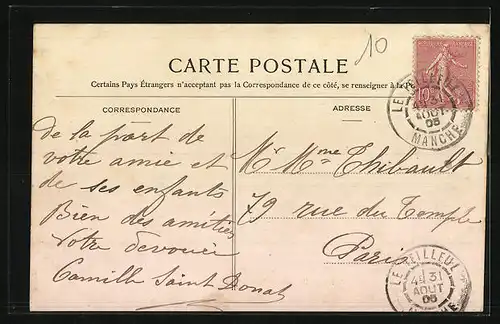 10
CARTE POSTALE
Certains Pays Étrangers n'acceptant pas la Correspondance de ce côté, se renseigner à la
CORRESPONDANCE
ADRESSE
de la part de
votre amie et
de ses enfants
Bien des amitiés
Votre dévouée
Camille Saint Donat
Mr Mme Thibault
79 rue du Temple
Paris
10
31
AOUT
05
MANCHE
LE TEILLEUL
4E 31
AOUT
05
MANCHE